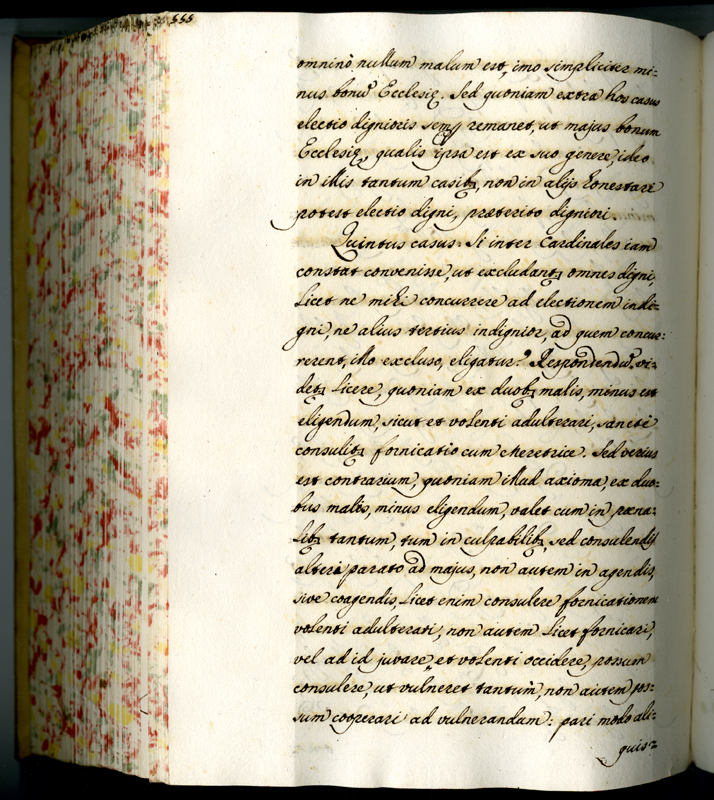 555
omninò nullum malum est, imo simpliciter mi-
nus bonũ Ecclesię. Sed quoniam extra hos casus
electio dignioris semp remanet, ut majus bonum
Ecclesię, qualis ipsa est ex suo genere, ideo
in illis tantum casibꝫ, non in alijs honestari
potest electio digni, præterito digniori.
Quintus casus. Si inter Cardinales iam
constat convenisse, ut excludantꝫ omnes digni,
Licet ne mihi concurrere ad electionem indi-
gni, ne alius tertius indignior, ad quem concur-
rerent, illo excluso, eligatur? Respondendũ vi-
detꝫ Licere, quoniam ex duobꝫ malis, minus est
eligendum, sicut et volenti adulterari, sanctè
consulitꝫ fornicatio cum Meretrice. Sed verius
est contrarium, quoniam illud axioma, ex duo-
bus malis, minus eligendum, valet cum in pœna-
Libꝫ tantum, tum in culpabilibꝫ, sed consulendis
alteri parato ad majus, non autem in agendis,
sive coagendis, Licet enim consulere fornicationem
volenti adulterari, non autem Licet fornicari,
vel ad id juvare, et volenti occidere, possum
consulere ut vulneret tantum, non autem pos-
sum cooperari ad vulnerandum: pari modo ali-
quis-